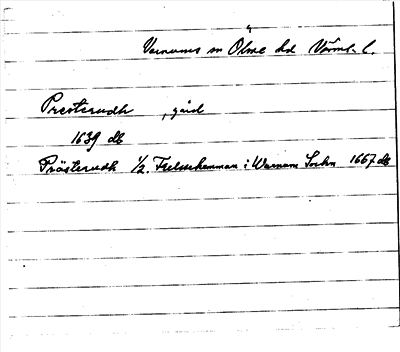 Varnums sn Ölme hd Värml. l.
Presterudh , gård
1639 db
Prästerudh 1/2. Frelsehemman i Warnum Sochn 1667 db